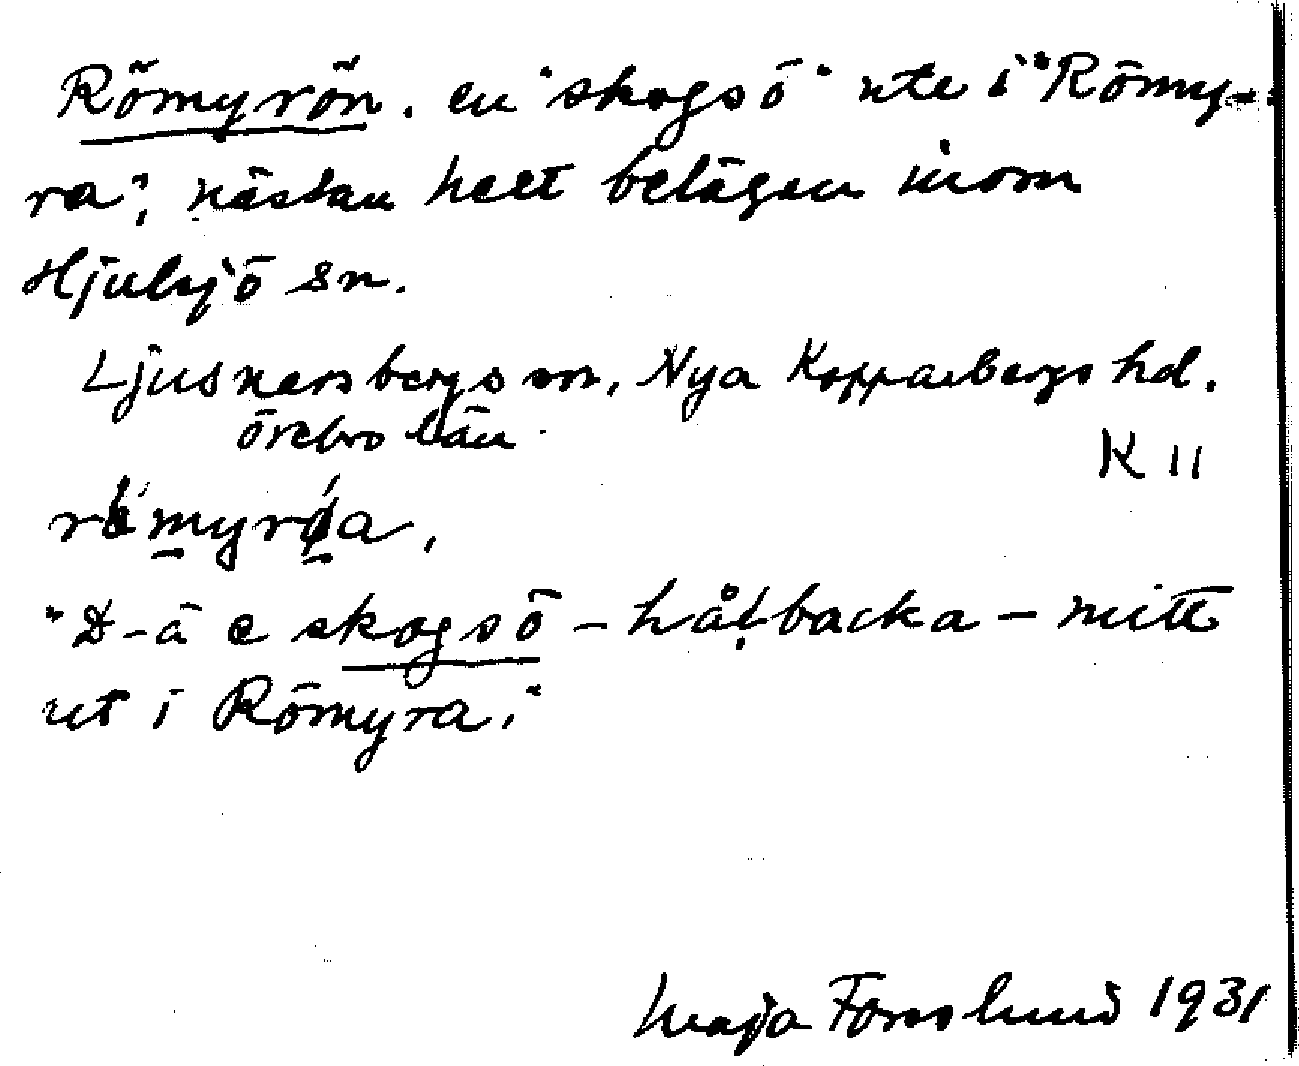 Römyrön. en "skogsö" ute i "Römy-
ra", nästan helt belägen inom
Hjulsjö sn.
Ljusnarsbergs sn, Nya Kopparbergs hd.
Örebro län
K 11
"D-ä e skogsö - hålbacka - mitt
ut i Römyra."
Maja Forslund 1931